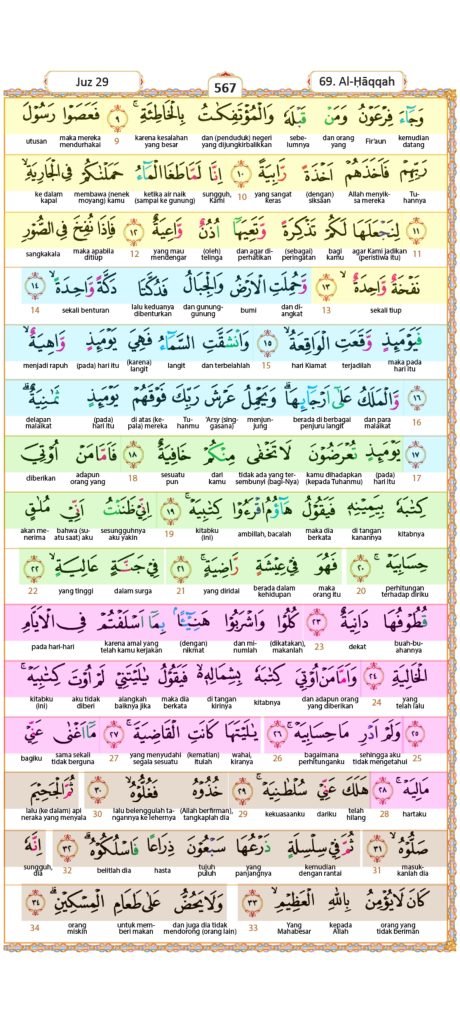 Juz 29
567
69. Al-Ḥāqqah
وَجَاۤءَ فِرْعَوْنُ وَمَنْ قَبْلَهٗ وَالْمُؤْتَفِكٰتُ بِالْخَاطِئَةِۚ ۝٩ فَعَصَوْا رَسُوْلَ
kemudian datang Fir'aun dan orang yang sebe-lumnya dan (penduduk) negeri yang dijungkirbalikkan karena kesalahan yang besar 9 maka mereka mendurhakai utusan
رَبِّهِمْ فَاَخَذَهُمْ اَخْذَةً رَّابِيَةً ۝١٠ اِنَّا لَمَّا طَغَا الْمَاۤءُ حَمَلْنٰكُمْ فِى الْجَارِيَةِۙ
Tu-hannya Allah menyik-sa mereka (dengan) siksaan yang sangat keras 10 sungguh, Kami ketika air naik (sampai ke gunung) membawa (nenek moyang) kamu ke dalam kapal
۝١١ لِنَجْعَلَهَا لَكُمْ تَذْكِرَةً وَّتَعِيَهَآ اُذُنٌ وَّاعِيَةٌ ۝١٢ فَاِذَا نُفِخَ فِى الصُّوْرِ
11 agar Kami jadikan (peristiwa itu) bagi kamu (sebagai) peringatan dan agar di-perhatikan (oleh) telinga yang mau mendengar 12 maka apabila ditiup sangkakala
نَفْخَةٌ وَّاحِدَةٌ ۝١٣ وَّحُمِلَتِ الْاَرْضُ وَالْجِبَالُ فَدُكَّتَا دَكَّةً وَّاحِدَةًۙ ۝١٤
sekali tiup 13 dan di-angkat bumi dan gunung-gunung lalu keduanya dibenturkan sekali benturan 14
فَيَوْمَىِٕذٍ وَّقَعَتِ الْوَاقِعَةُۙ ۝١٥ وَانْشَقَّتِ السَّمَاۤءُ فَهِيَ يَوْمَىِٕذٍ وَّاهِيَةٌۙ
maka pada hari itu terjadilah hari Kiamat 15 dan terbelahlah langit (karena) langit (pada) hari itu menjadi rapuh
۝١٦ وَّالْمَلَكُ عَلٰٓى اَرْجَاۤىِٕهَاۗ وَيَحْمِلُ عَرْشَ رَبِّكَ فَوْقَهُمْ يَوْمَىِٕذٍ ثَمٰنِيَةٌۗ
16 dan para malaikat berada di berbagai penjuru langit dan menjun-jung 'Arsy (sing-gasana) Tu-hanmu di atas (ke-pala) mereka (pada) hari itu delapan malaikat
۝١٧ يَوْمَىِٕذٍ تُعْرَضُوْنَ لَا تَخْفٰى مِنْكُمْ خَافِيَةٌ ۝١٨ فَاَمَّا مَنْ اُوْتِيَ
17 (pada) hari itu kamu dihadapkan (kepada Tuhanmu) tidak ada yang ter-sembunyi (bagi-Nya) dari kamu sesuatu pun 18 adapun orang yang diberikan
كِتٰبَهٗ بِيَمِيْنِهٖ فَيَقُوْلُ هَاۤؤُمُ اقْرَءُوْا كِتٰبِيَهْۚ ۝١٩ اِنِّيْ ظَنَنْتُ اَنِّيْ مُلٰقٍ
kitabnya di tangan kanannya maka dia berkata ambillah, bacalah kitabku (ini) 19 sesungguhnya aku yakin bahwa (su-atu saat) aku akan me-nerima
حِسَابِيَهْۚ ۝٢٠ فَهُوَ فِيْ عِيْشَةٍ رَّاضِيَةٍۚ ۝٢١ فِيْ جَنَّةٍ عَالِيَةٍۙ ۝٢٢
perhitungan terhadap diriku 20 maka orang itu berada dalam kehidupan yang diridai 21 dalam surga yang tinggi 22
قُطُوْفُهَا دَانِيَةٌ ۝٢٣ كُلُوْا وَاشْرَبُوْا هَنِيْۤـًٔا ۢبِمَآ اَسْلَفْتُمْ فِى الْاَيَّامِ
buah-bu-ahannya dekat 23 (dikatakan), makanlah dan mi-numlah (dengan) nikmat karena amal yang telah kamu kerjakan pada hari-hari
الْخَالِيَةِ ۝٢٤ وَاَمَّا مَنْ اُوْتِيَ كِتٰبَهٗ بِشِمَالِهٖۙ فَيَقُوْلُ يٰلَيْتَنِيْ لَمْ اُوْتَ كِتٰبِيَهْۚ
yang telah lalu 24 dan adapun orang yang diberikan kitabnya di tangan kirinya maka dia berkata alangkah baiknya jika aku tidak diberi kitabku (ini)
۝٢٥ وَلَمْ اَدْرِ مَا حِسَابِيَهْۚ ۝٢٦ يٰلَيْتَهَا كَانَتِ الْقَاضِيَةَۚ ۝٢٧ مَآ اَغْنٰى عَنِّيْ
25 sehingga aku tidak mengetahui bagaimana perhitunganku 26 wahai, kiranya (kematian) itulah yang menyudahi segala sesuatu 27 sama sekali tidak berguna bagiku
مَالِيَهْۚ ۝٢٨ هَلَكَ عَنِّيْ سُلْطٰنِيَهْۚ ۝٢٩ خُذُوْهُ فَغُلُّوْهُۙ ۝٣٠ ثُمَّ الْجَحِيْمَ
hartaku 28 telah hilang dariku kekuasaanku 29 (Allah berfirman), tangkaplah dia lalu belenggulah ta-ngannya ke lehernya 30 lalu (ke dalam) api neraka yang menyala
صَلُّوْهُۙ ۝٣١ ثُمَّ فِيْ سِلْسِلَةٍ ذَرْعُهَا سَبْعُوْنَ ذِرَاعًا فَاسْلُكُوْهُۗ ۝٣٢ اِنَّهٗ
masuk-kanlah dia 31 kemudian dengan rantai yang panjangnya tujuh puluh hasta belitlah dia 32 sungguh, dia
كَانَ لَا يُؤْمِنُ بِاللّٰهِ الْعَظِيْمِۙ ۝٣٣ وَلَا يَحُضُّ عَلٰى طَعَامِ الْمِسْكِيْنِۗ ۝٣٤
orang yang tidak beriman kepada Allah Yang Mahabesar 33 dan juga dia tidak mendorong (orang lain) untuk mem-beri makan orang miskin 34